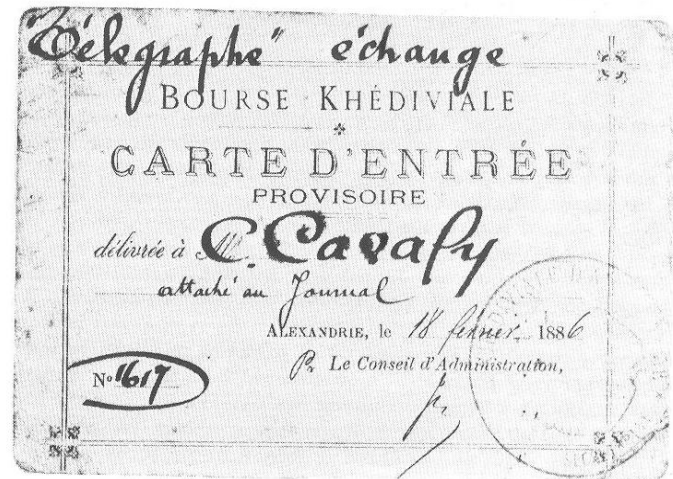 "Télégraphe" échange
BOURSE KHÉDIVIALE
CARTE D'ENTRÉE
PROVISOIRE
délivrée à M. C. Cavafy
attaché au Journal
ALEXANDRIE, le 18 février 1886
Pr Le Conseil d'Administration,
No 1617